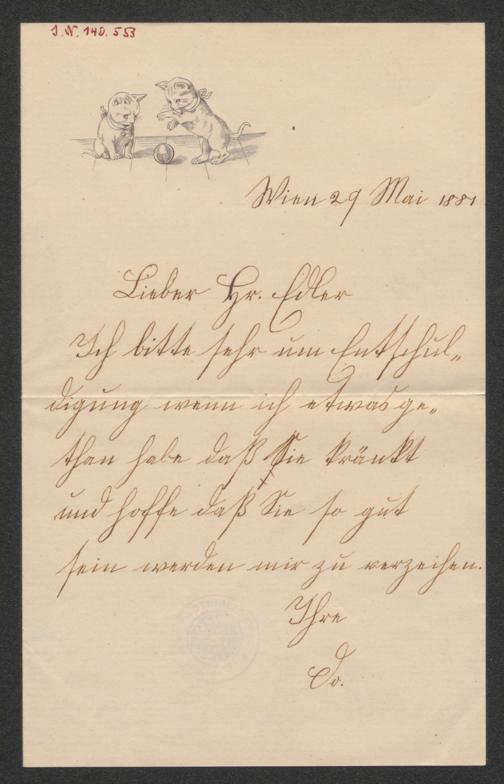 J. N. 140.553
Wien 29 Mai 1881
Lieber Hr. Edler
Ich bitte sehr um Entschul„
digung wenn ich etwas ge„
than habe daß Sie kränkt
und hoffe daß Sie so gut
sein werden mir zu verzeihen.
Ihre
Do.